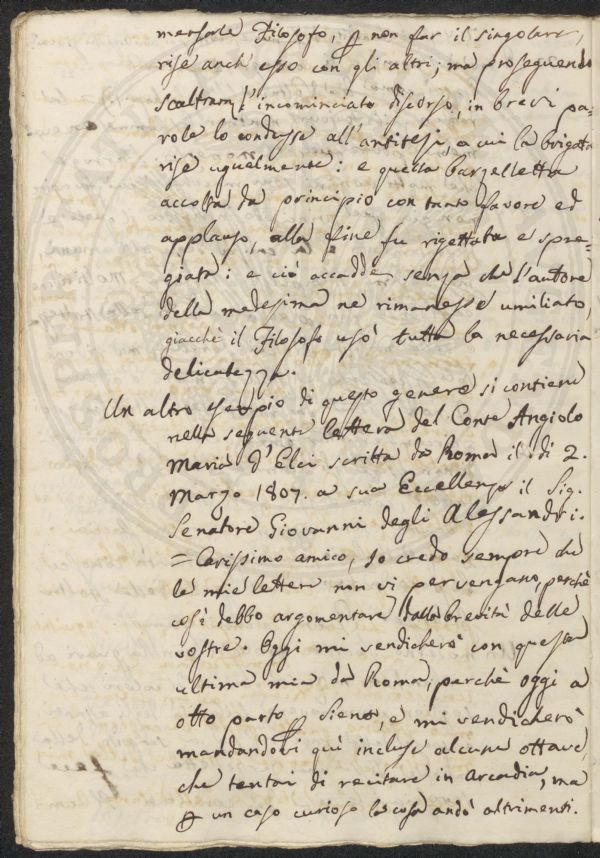 mensale Filosofo, p non far il singolare,
rise anch'esso con gli altri; ma proseguendo
scaltram.e l'incominciato discorso, in brevi pa-
role lo condusse all'antitesi, a cui la brigata
rise ugualmente: e quella barzelletta
accolta da principio con tanto favore ed
applauso, alla fine fu rigettata e spre-
giata: e ciò accadde senza che l'autore
della medesima ne rimanesse umiliato,
giacchè il Filosofo usò tutta la necessaria
delicatezza.
Un altro esempio di questo genere si contiene
nella seguente lettera del Conte Angiolo
Maria d'Elci scritta da Roma il dì 2.
Marzo 1807. a sua Eccellenza il Sig.
Senatore Giovanni degli Alessandri.
= Carissimo amico, Io credo sempre che
le mie lettere non vi pervengano, perchè
così debbo argomentare dalla brevità delle
vostre. Oggi mi vendicherò con questa
ultima mia da Roma, perchè oggi a
otto parto p Siena, e mi vendicherò
mandandovi quì incluse alcune ottave,
che tentai di recitare in Arcadia, ma
p un caso curioso la cosa andò altrimenti.